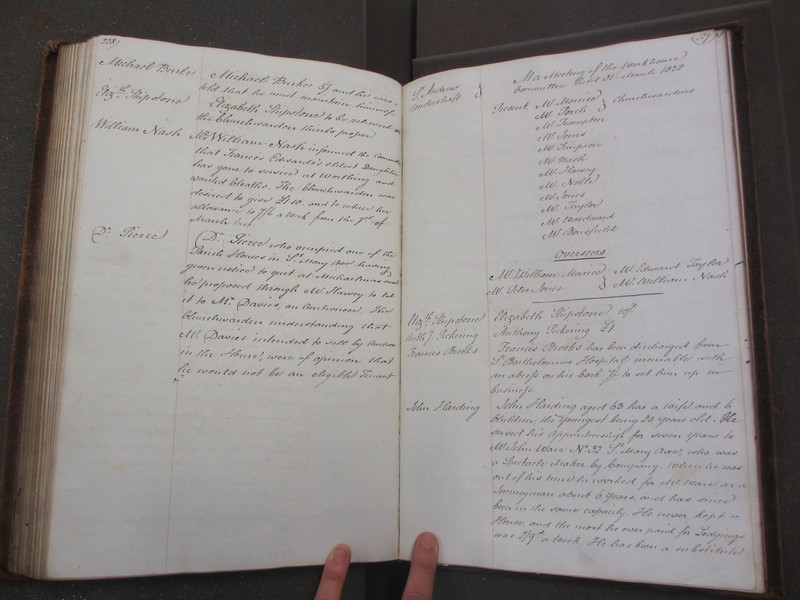 228
Michael Burkes
Michael Burkes 5/ and he was
told that he must maintain himself
Elizth. Shipstone
Elizabeth Shipstone to be relieved as
the Churchwarden thinks proper
William Nash
Mr. William Nash informed the Committee
that Frances Edwards's eldest Daughter
has gone to service at Worthing and
wanted Cloaths. The Churchwarden was
desired to give £1.10. and to reduce her
allowance to 7/6 a week from the 7th. of
March last.
Dr. Pierce
Dr. Pierce who occupied one of the
Parish Houses in St. Mary Axe having
given notice to quit at Michaelmas next
he proposed through Mr. Harvey to let
it to Mr. Davies, an Auctioneer. The
Churchwarden understanding that
Mr. Davies intended to sell by Auction
in the House, were of opinion that
he would not be an eligible Tenant
229
St. Andrew
Undershaft
At a Meeting of the Workhouse
Committee held 31st. March 1828
Present
Mr. Morice
Mr. Ponly
Churchwardens
Mr. Frampton
Mr. Jones
Mr. Simpson
Mr. Nash
Mr. Harvey
Mr. Noble
Mr. Jones
Mr. Taylor
Mr. Woodward
Mr. Bonefield
Overseers
Mr. William Morice
Mr. Edward Taylor
Mr. Peter Jones
Mr. William Nash
Elizth. Shipstone
Elizabeth Shipstone 10/.
Anthy. Pickering
Anthony Pickering £1
Frances Brooks
Francis Brooks has been discharged from
St. Bartholomews Hospital incurable with
an abcess on his back to set him up in
business.
John Harding
John Harding aged 63 has a Wife and 6
Children, the Youngest being 20 years old. He
served his Apprenticeship for seven years to
Mr. John Ware No. 32 St. Mary Axe, who was
a Spectacle Maker by Company. When he was
out of his time he worked for Mr. Ware as a
Journeyman about 6 Years, and has since
been in the same capacity. He never kept a
House, and the most he ever paid for Lodgings
was 2/9d. a Week. He has been a substitute